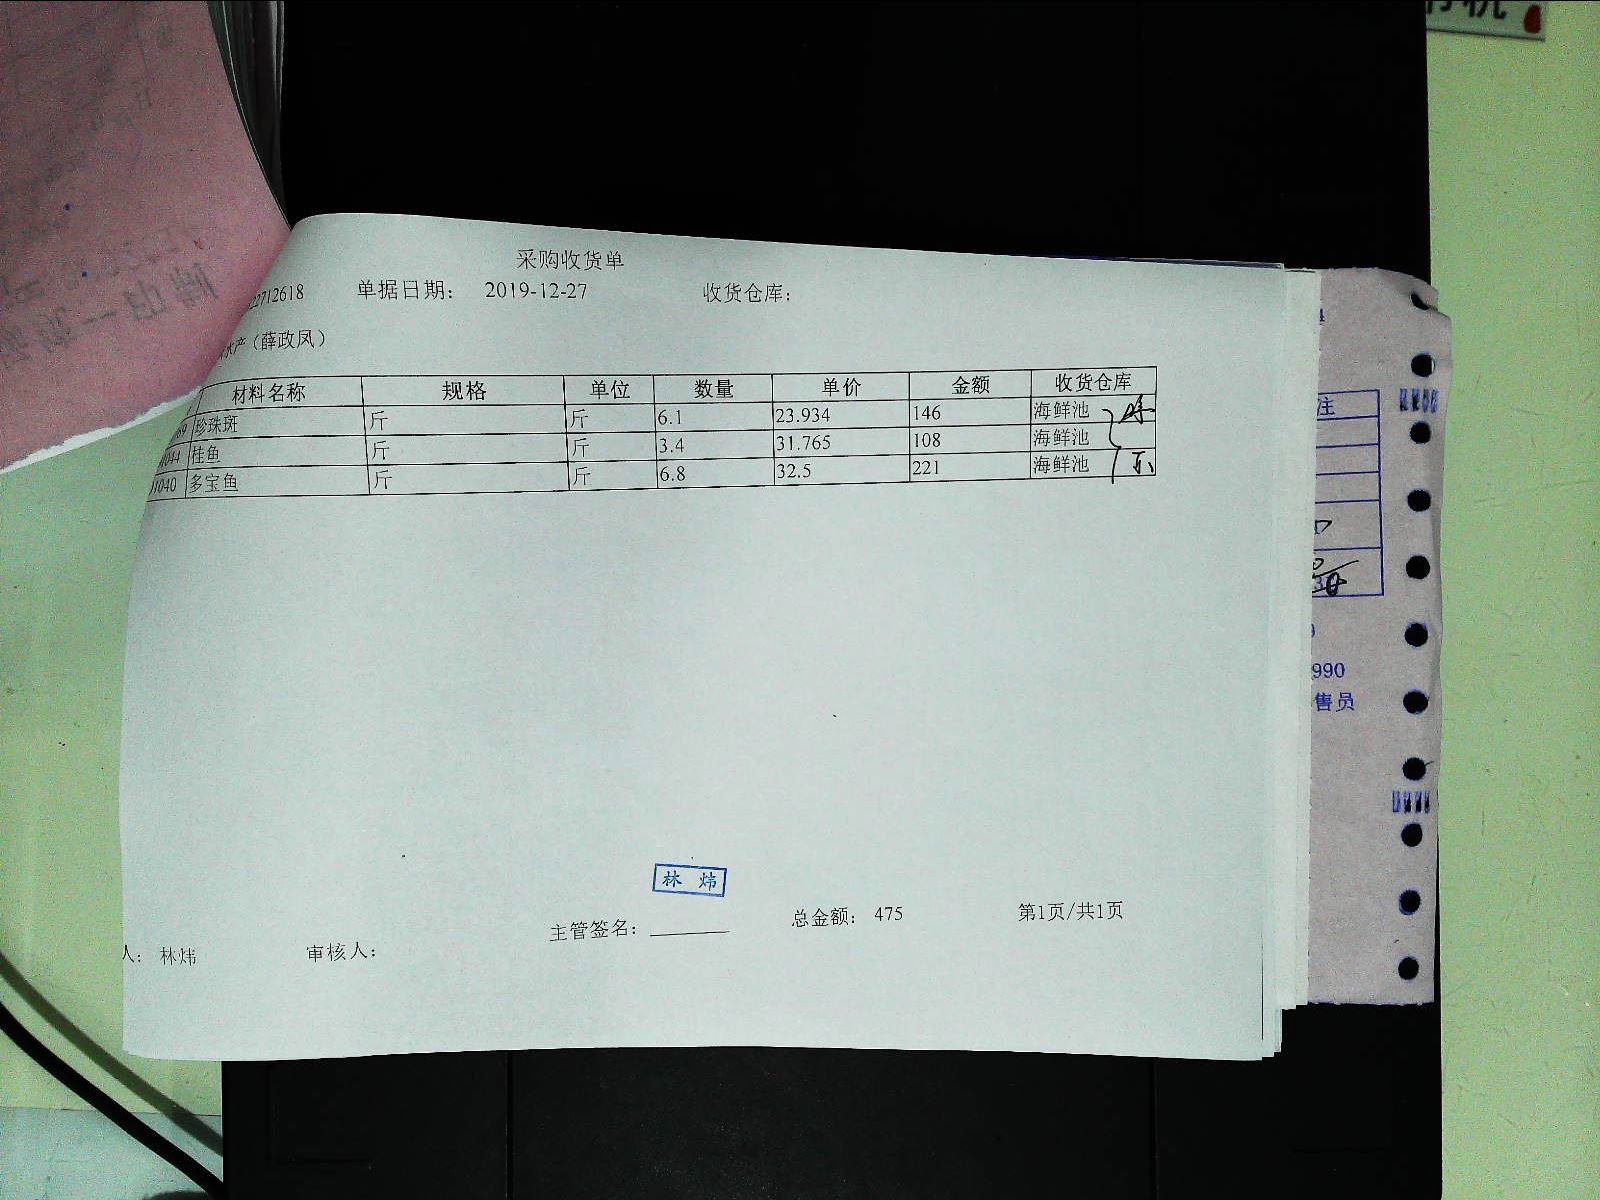 采购收货单
22712618 单据日期： 2019-12-27 收货仓库：
水产（薛政凤）
材料名称 规格 单位 数量 单价 金额 收货仓库
89 珍珠斑 斤 斤 6.1 23.934 146 海鲜池
1044 桂鱼 斤 斤 3.4 31.765 108 海鲜池
1040 多宝鱼 斤 斤 6.8 32.5 221 海鲜池
林 炜
主管签名： 总金额： 475 第1页/共1页
人： 林炜 审核人：
注
990
售员